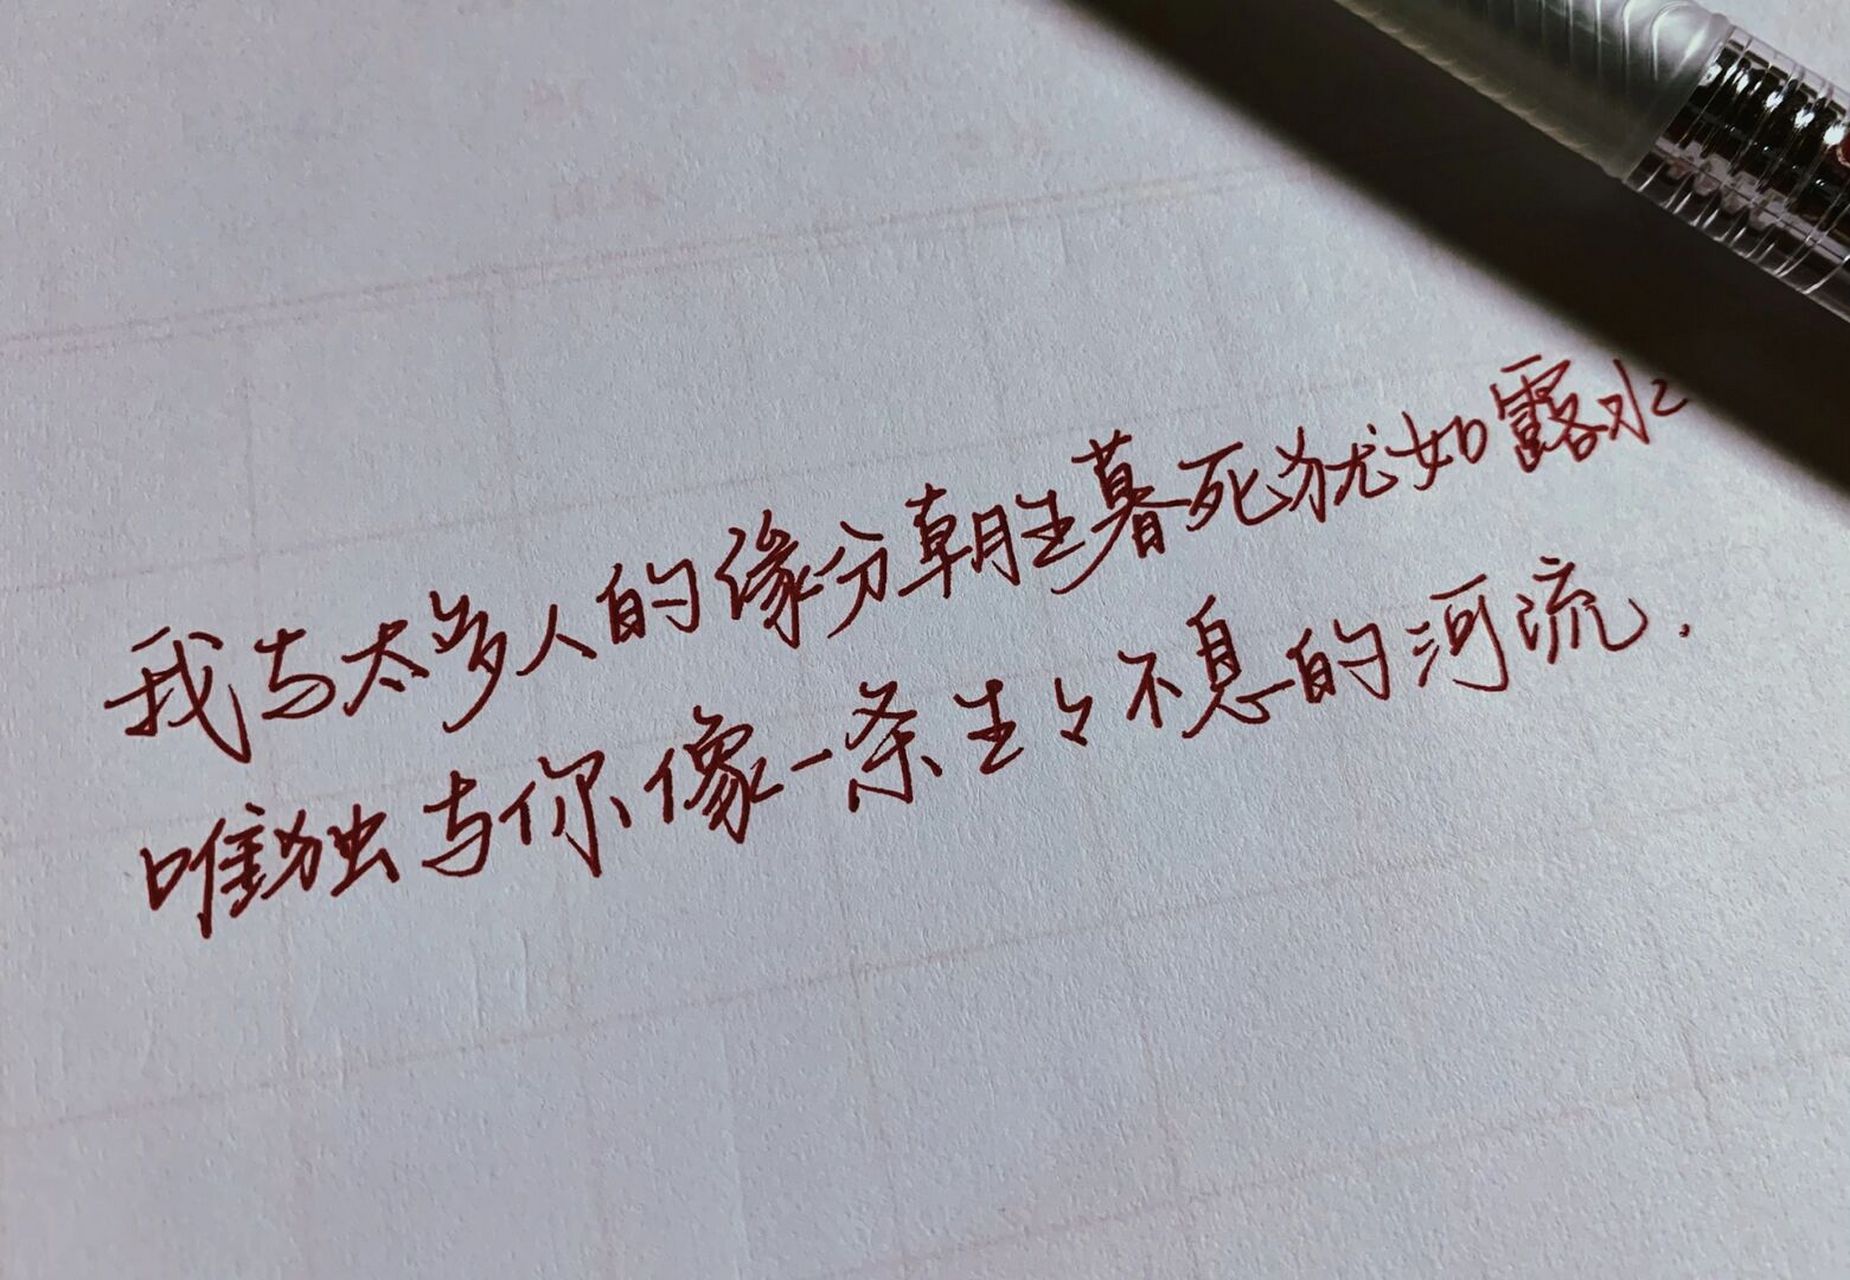 我与太多人的缘分朝生暮死犹如露水
唯独与你像一条生々不息的河流.